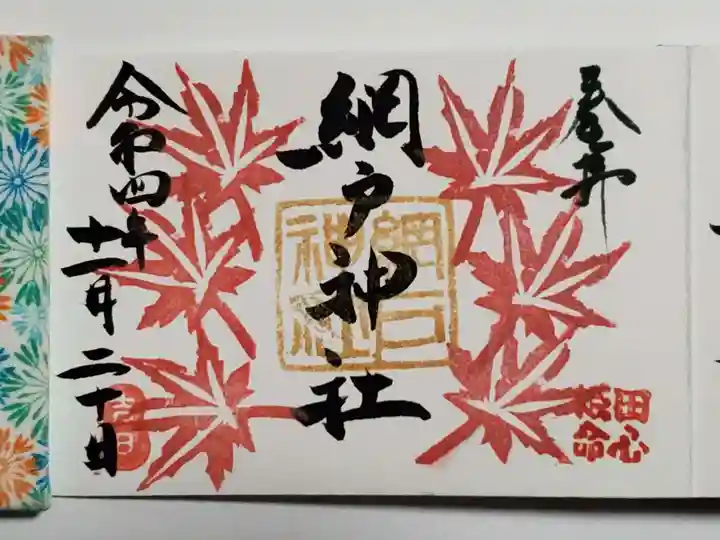 奉拝
網戸神社
網戸神社
令和四年
十一月二十日